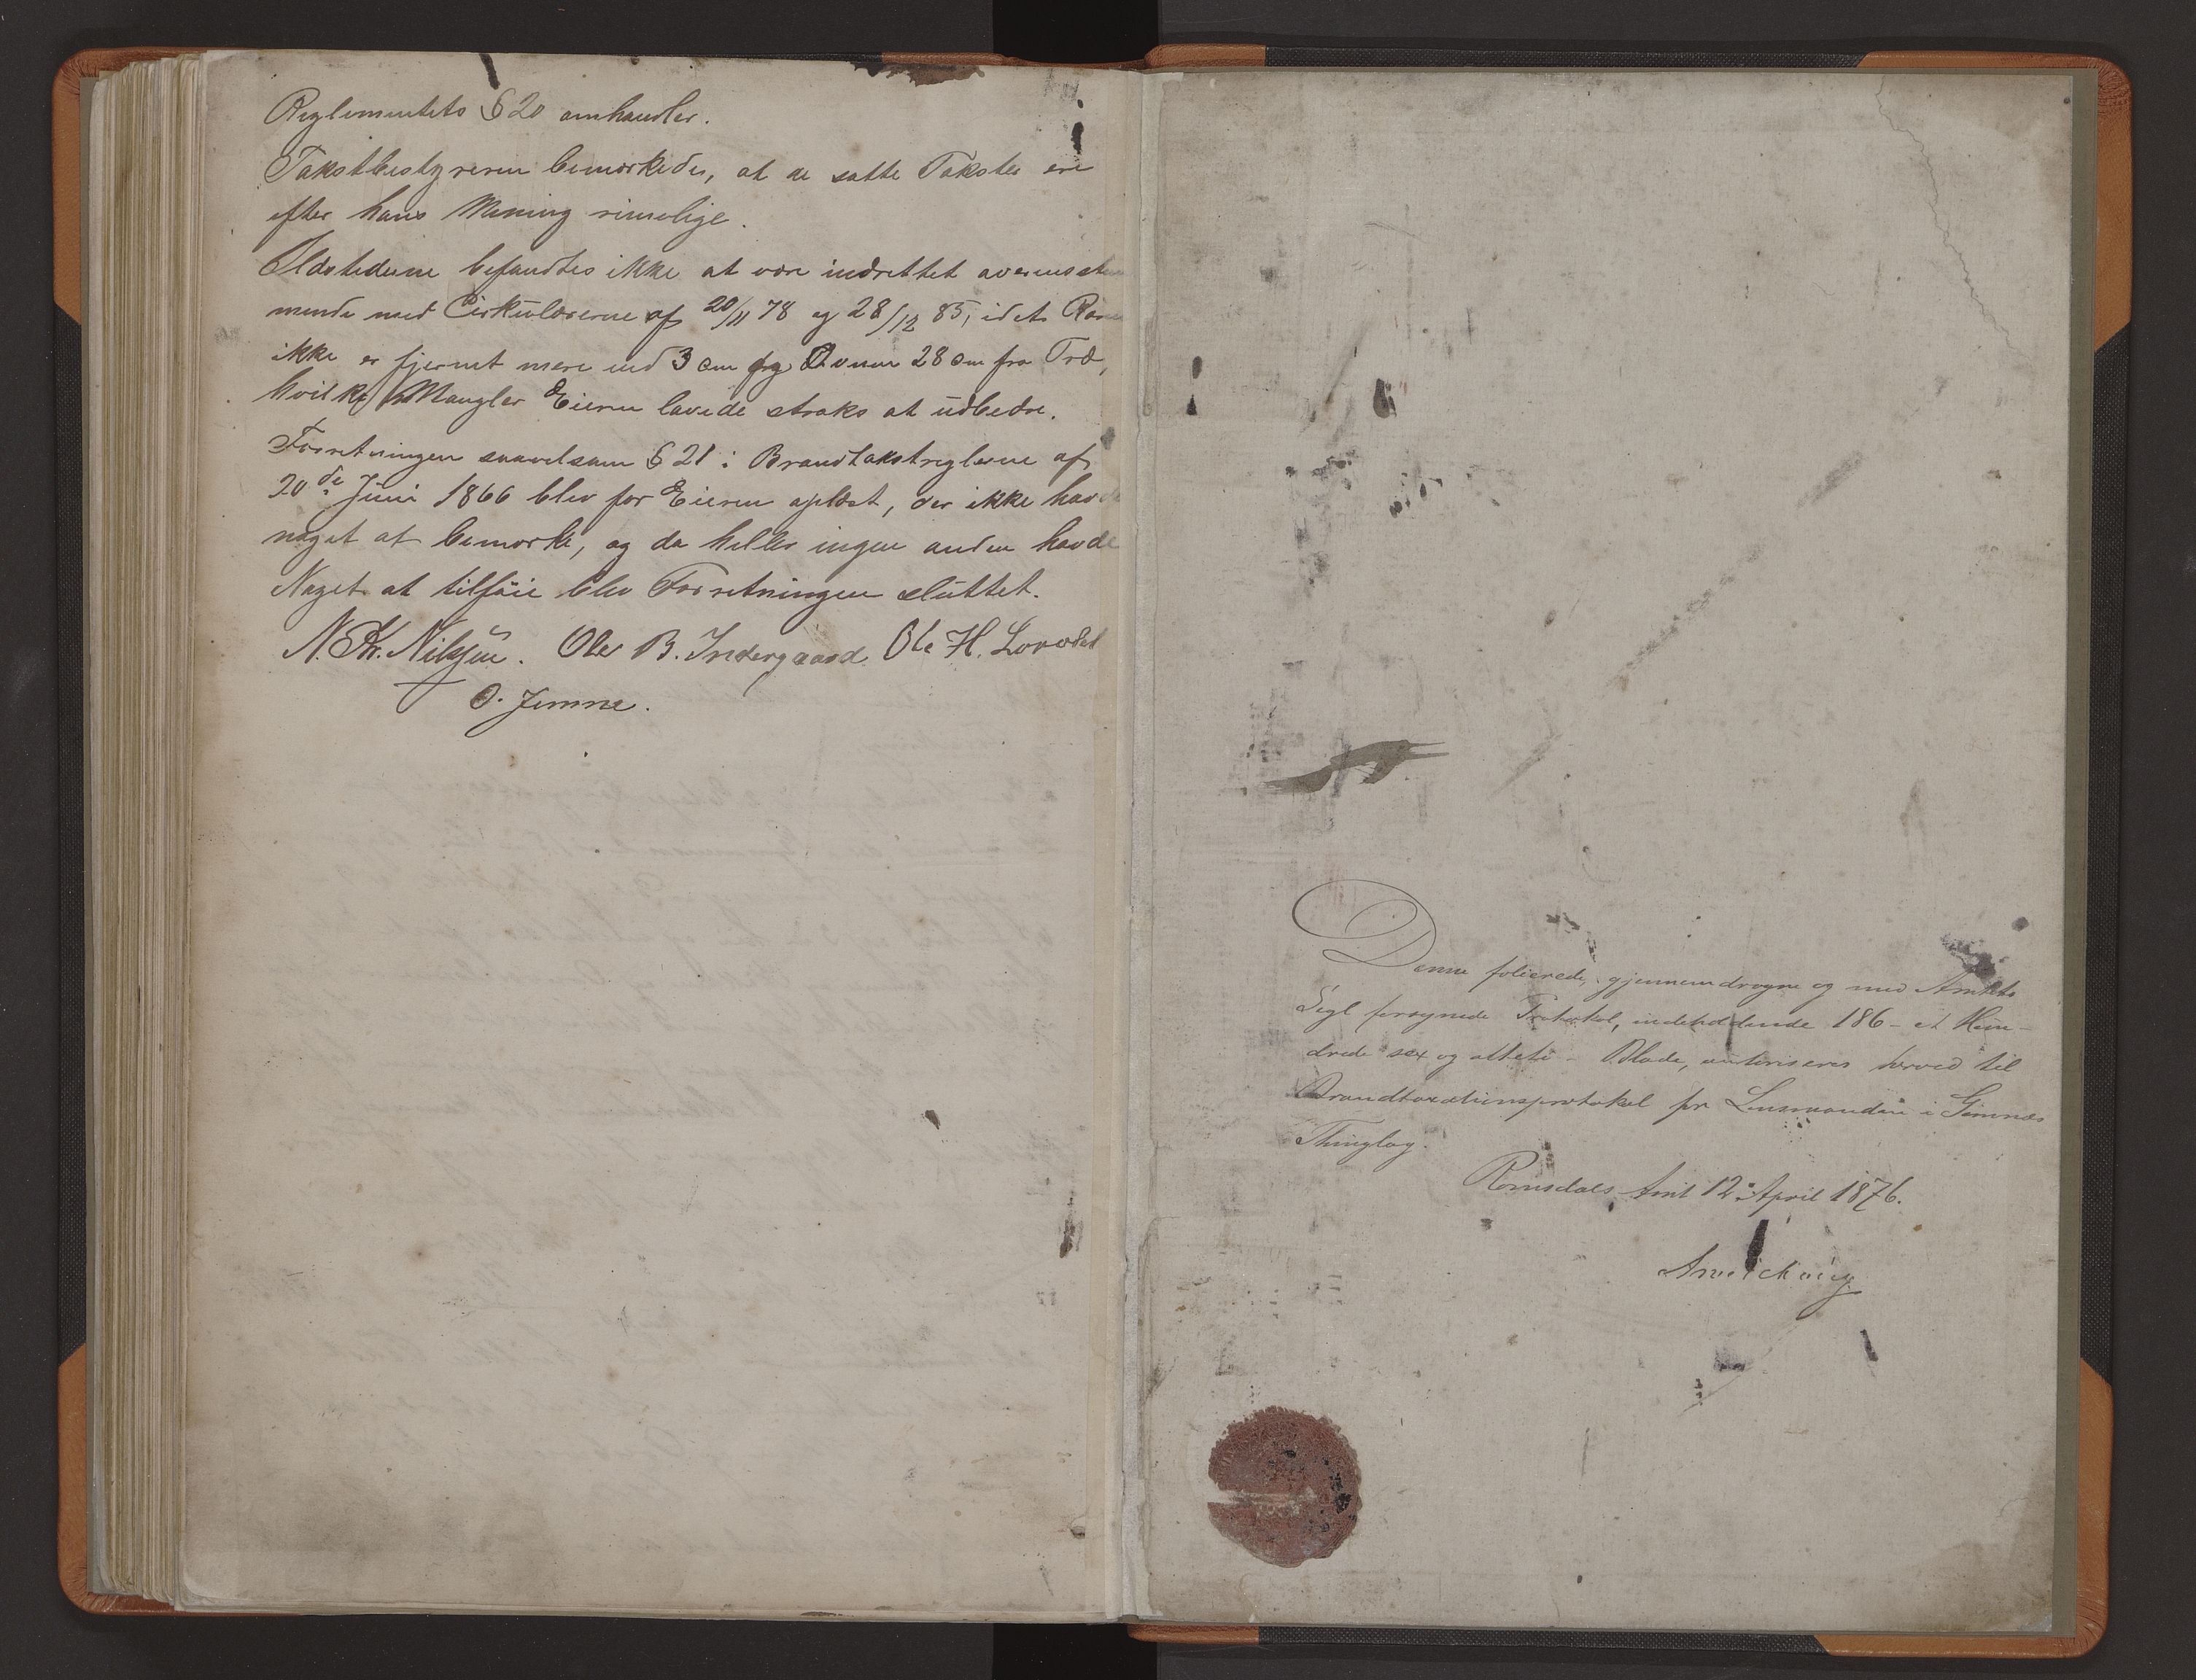 Reglementets § 20 omhandler.
Takstbestyreren bemærkede, at de satte Takster ere
efter hans Mening rimelige.
Ildstederne befandtes ikke at være indrettet overensstem
mende med Cirkulærerne af 20/11 78 og 28/12 85, idet
ikke er fjernet mere end 3 cm og 28 cm fra Træ,
hvilke Mangler Eieren lovede straks at udbedre.
Forretningen saavelsom § 21 i Brandtakstreglerne af
20de Juni 1866 blev for Eieren oplæst, der ikke havde
noget at bemærke, og da heller ingen anden havde
Noget at tilføie blev Forretningen sluttet.
N. Kr. Nilssen. Ole B. Indergaard Ole H.
O. Jimne.
Denne folierede, gjennemdragne og med Amtets
Segl forsynede Protokol, indeholdende 186 - et Hun-
drede sex og otteti - Blade, autoriseres herved til
Brandtaxationsprotokol for Lensmanden i Gimnæs
Thinglag.
Romsdals Amt 12 April 1876.